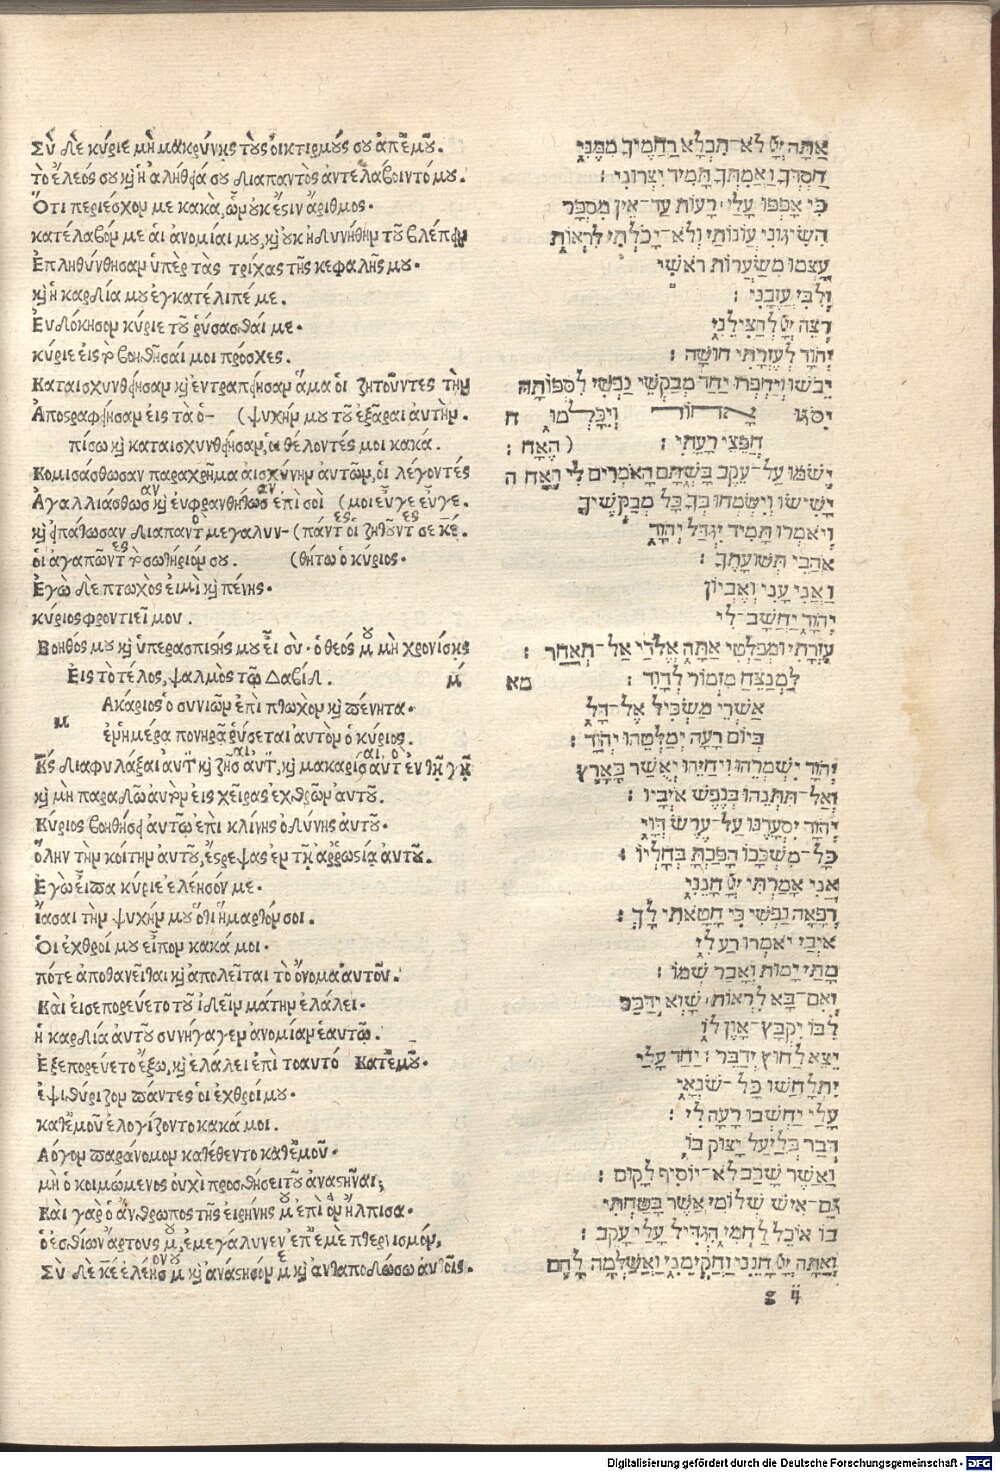 Σὺ δὲ κύριε μὴ μακρύνῃς τοὺς οἰκτιρμούς σου ἀπ' ἐμοῦ.
τὸ ἔλεός σου καὶ ἡ ἀλήθειά σου διαπαντὸς ἀντελάβοιντό μου.
Ὅτι περιέσχον με κακὰ, ὧν οὐκ ἔστιν ἀριθμος.
κατέλαβον με αἱ ἀνομίαι μου, καὶ οὐκ ἠδυνήθην τοῦ βλέπειν
Ἐπληθύνθησαν ὑπὲρ τὰς τρίχας τῆς κεφαλῆς μου.
καὶ ἡ καρδία μου ἐγκατέλιπέ με.
Εὐδόκησον κύριε τοῦ ῥύσασθαί με.
κύριε εἰς τὸ βοηθῆσαί μοι πρόσχες.
Καταισχυνθείησαν καὶ ἐντραπείησαν ἅμα οἱ ζητοῦντες τὴν
Ἀποστραφείησαν εἰς τὰ ὀ- (ψυχήν μου τοῦ ἐξᾶραι αὐτὴν.
πίσω καὶ καταισχυνθείησαν, οἱ θέλοντές μοι κακά.
Κομισάσθωσαν παραχρῆμα αἰσχύνην αὐτῶν, οἱ λέγοντές
Ἀγαλλιάσθωσαν καὶ ἐυφρανθήτωσαν ἐπὶ σοὶ (μοι εὖγε εὖγε.
καὶ εἰπάτωσαν διαπαντὸ μεγαλυν- (πάντες οἱ ζητοῦντες σε κέ.
οἱ ἀγαπῶντες τὸ σωτήριόν σου. (θήτω ὁ κύριος.
Ἐγὼ δὲ πτωχὸς ἐιμὶ καὶ πένης.
κύριος φροντιεῖ μου.
Βοηθός μου καὶ ὑπερασπιστής μου εἶ σὺ. ὁ θεός μου μὴ χρονίσῃς
Εἰς τὸ τέλος, ψαλμὸς τῷ Δαβίδ. μ
Μ Ακάριος ὁ συνιῶν ἐπὶ πτωχὸν καὶ πένητα.
ἐν ἡμέρᾳ πονηρᾷ ῥύσεται αὐτὸν ὁ κύριος.
Κς διαφυλάξαι αὐτ καὶ ζήσαι αὐτ, καὶ μακαρίσαι αὐτὸ ἐν τῇ γῇ
καὶ μὴ παραδῷ αὐτὸν εἰς χεῖρας ἐχθρῶν αὐτοῦ.
Κύριος βοηθήσει αὐτῷ ἐπὶ κλίνης ὀδύνης αὐτοῦ.
ὅλην τὴν κοίτην αὐτοῦ, ἔστρεψας ἐν τῇ ἀῤῥωστίᾳ αὐτοῦ.
Ἐγὼ εἶπα κύριε ἐλέησόν με.
ἴασαι τὴν ψυχήν μου ὅτι ἥμαρτόν σοι.
Οἱ ἐχθροί μου εἶπον κακά μοι.
πότε ἀποθανεῖται καὶ ἀπολεῖται τὸ ὄνομα αὐτοῦ.
Καὶ εἰσεπορεύετο τοῦ ἰδεῖν μάτην ἐλάλει.
ἡ καρδία αὐτοῦ συνήγαγεν ἀνομίαν ἑαυτῷ.
Ἐξεπορεύετο ἔξω, καὶ ἐλάλει ἐπὶ τοαυτό Κατ' ἐμοῦ.
ἐψιθύριζον πάντες οἱ ἐχθροί μου.
κατ' ἐμοῦ ἐλογίζοντο κακά μοι.
Λόγον παράνομον κατέθεντο κατ' ἐμοῦ.
μὴ ὁ κοιμώμενος ὀυχὶ προσθήσει τοῦ ἀναστῆναι;
Καὶ γὰρ ὁ ἄνθρωπος τῆς ἐιρήνης μου ἐπὶ ὃν ἤλπισα.
ὁ ἐσθίων ἄρτους μου, ἐμεγάλυνεν ἐπ' ἐμὲ πτερνισμόν,
Σὺ δὲ κέ ἐλέησον με καὶ ἀνάστησόν με καὶ ἀνταποδώσω αὐτοῖς.
אַתָּה יְיָ לֹא־תִכְלָא רַחֲמֶיךָ מִמֶּנִּי
חַסְדְּךָ וַאֲמִתְּךָ תָּמִיד יִצְּרוּנִי׃
כִּי אָפְפוּ עָלַי רָעוֹת עַד־אֵין מִסְפָּר
הִשִּׂיגוּנִי עֲוֹנוֹתַי וְלֹא־יָכֹלְתִּי לִרְאוֹת
עָצְמוּ מִשַּׂעֲרוֹת רֹאשִׁי
וְלִבִּי עֲזָבָנִי׃
רְצֵה יְיָ לְהַצִּילֵנִי
יְהוָֹה לְעֶזְרָתִי חוּשָׁה׃
יֵבֹשׁוּ וְיַחְפְּרוּ יַחַד מְבַקְשֵׁי נַפְשִׁי לִסְפּוֹתָהּ
יִסֹּגוּ אָחוֹר וְיִכָּלְמוּ ח
חֲפֵצֵי רָעָתִי׃ (הֶאָח׃
יָשֹׁמּוּ עַל־עֵקֶב בָּשְׁתָּם הָאֹמְרִים לִי הֶאָח ה
יָשִׂישׂוּ וְיִשְׂמְחוּ בְּךָ כָּל מְבַקְשֶׁיךָ
וְיֹאמְרוּ תָמִיד יִגְדַּל יְהוָֹה
אֹהֲבֵי תְּשׁוּעָתֶךָ׃
וַאֲנִי עָנִי וְאֶבְיוֹן
יְהוָֹה יַחֲשָׁב־לִי
עֶזְרָתִי וּמְפַלְטִי אַתָּה אֱלֹדַי אַל־תְּאַחַר׃
מא לַמְנַצֵּחַ מִזְמוֹר לְדָוִד׃
אַשְׁרֵי מַשְׂכִּיל אֶל־דָּל
בְּיוֹם רָעָה יְמַלְּטֵהוּ יְהוָֹה׃
יְהוָֹה יִשְׁמְרֵהוּ וִיחַיֵּהוּ יְאֻשַּׁר בָּאָרֶץ
וְאַל־תִּתְּנֵהוּ בְּנֶפֶשׁ אֹיְבָיו׃
יְהוָֹה יִסְעָדֶנּוּ עַל־עֶרֶשׂ דְּוָי
כָּל־מִשְׁכָּבוֹ הָפַכְתָּ בְחָלְיוֹ׃
אֲנִי אָמַרְתִּי יְיָ חָנֵּנִי
רְפָאָה נַפְשִׁי כִּי חָטָאתִי לָךְ׃
אוֹיְבַי יֹאמְרוּ רַע לִי
מָתַי יָמוּת וְאָבַד שְׁמוֹ׃
וְאִם־בָּא לִרְאוֹת שָׁוְא יְדַבֵּר
לִבּוֹ יִקְבָּץ־אָוֶן לוֹ
יֵצֵא לַחוּץ יְדַבֵּר׃ יַחַד עָלַי
יִתְלַחֲשׁוּ כָּל־שֹׂנְאָי
עָלַי יַחְשְׁבוּ רָעָה לִי׃
דְּבַר בְּלִיַּעַל יָצוּק בּוֹ
וַאֲשֶׁר שָׁכַב לֹא־יוֹסִיף לָקוּם׃
גַּם־אִישׁ שְׁלוֹמִי אֲשֶׁר בָּטַחְתִּי
בוֹ אוֹכֵל לַחְמִי הִגְדִּיל עָלַי עָקֵב׃
וְאַתָּה יְיָ חָנֵּנִי וַהֲקִימֵנִי וַאֲשַׁלְּמָה לָהֶם
g ij
Digitalisierung gefördert durch die Deutsche Forschungsgemeinschaft - DFG